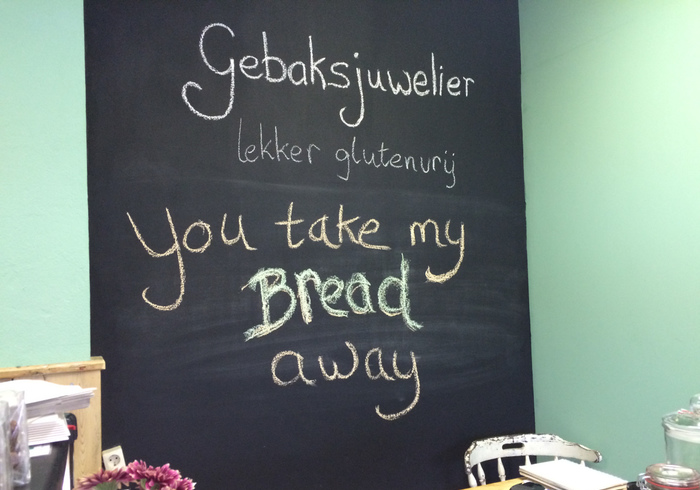 Gebaksjuwelier
lekker glutenvrij
You take my
Bread
away